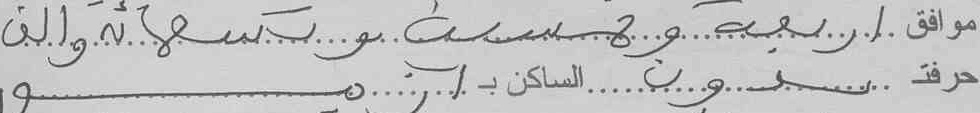 موافق اربعة وخمسين وتسعمائة والف
حرفته بدون الساكن ب ازمور